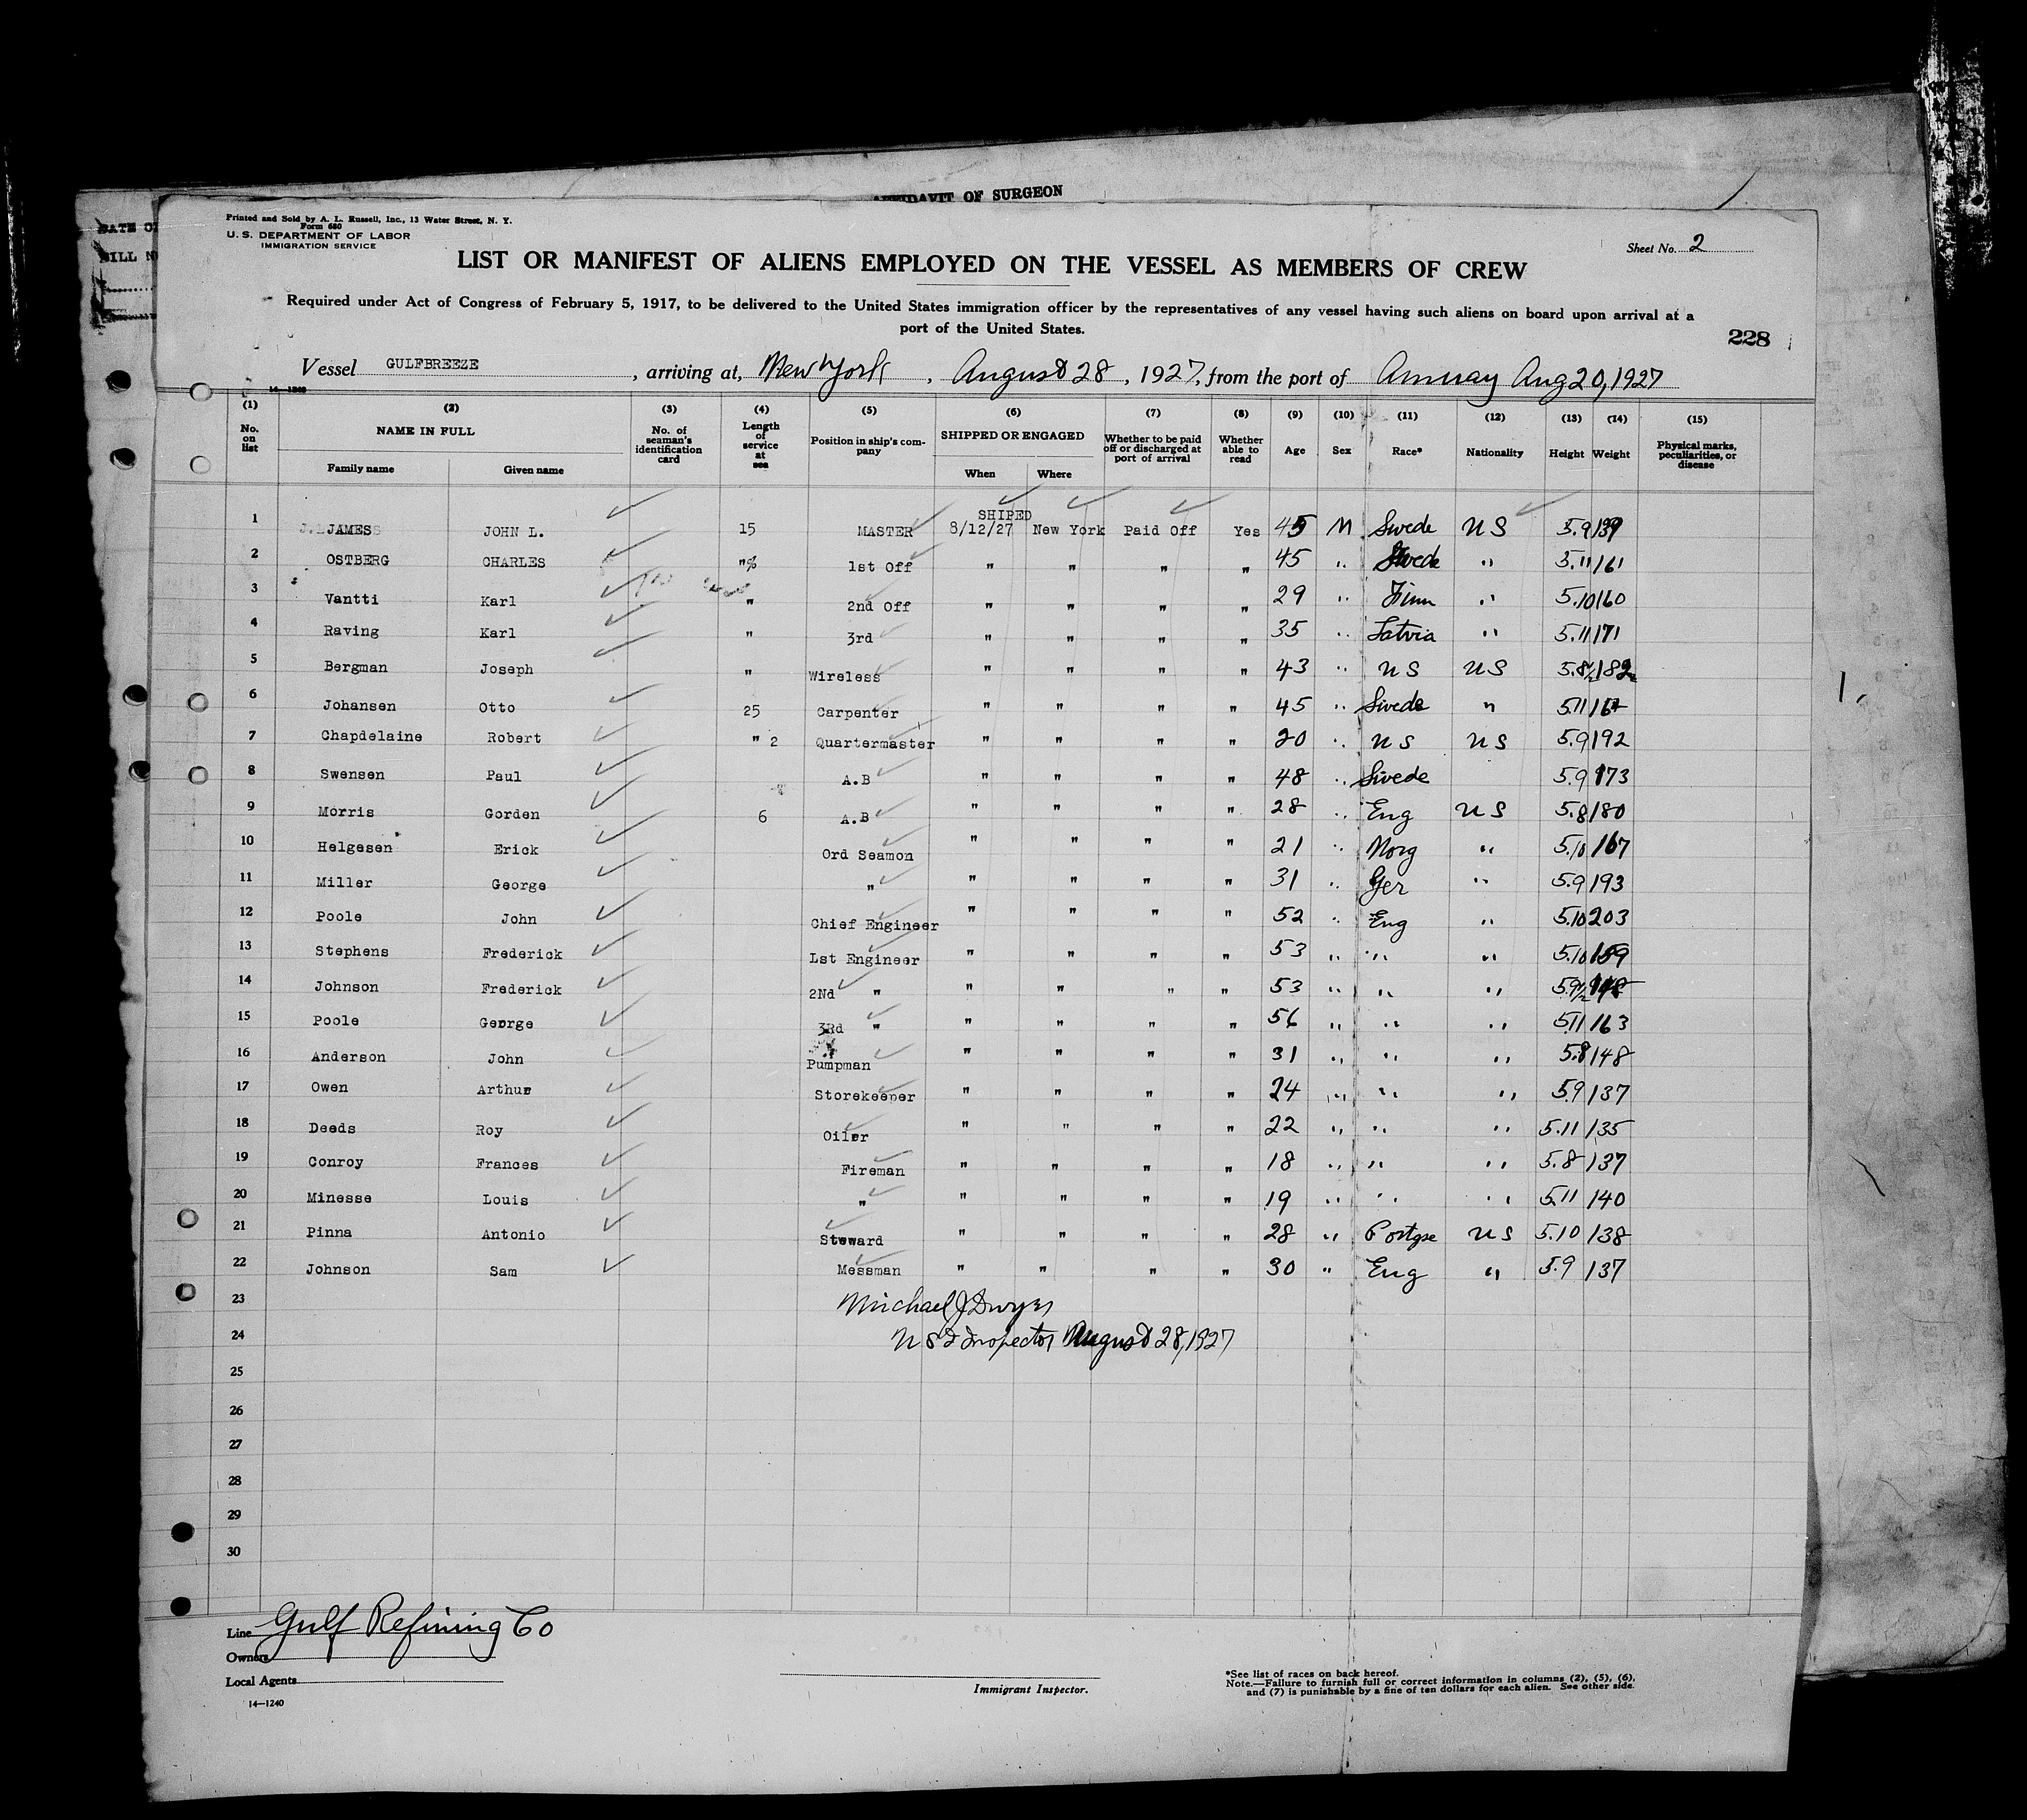 AFFIDAVIT OF SURGEON
Printed and Sold by A. L. Russell, Inc., 13 Water Street, N. Y.
Form 680
U. S. DEPARTMENT OF LABOR
IMMIGRATION SERVICE
Sheet No. 2
LIST OR MANIFEST OF ALIENS EMPLOYED ON THE VESSEL AS MEMBERS OF CREW
Required under Act of Congress of February 5, 1917, to be delivered to the United States immigration officer by the representatives of any vessel having such aliens on board upon arrival at a
port of the United States.
228
Vessel GULFBREEZE, arriving at, New York, August 28, 1927, from the port of Aruuay Aug 20, 1927
14-1240
(1) (2) (3) (4) (5) (6) (7) (8) (9) (10) (11) (12) (13) (14) (15)
No. on list NAME IN FULL Family name Given name No. of seaman's identification card Length of service at sea Position in ship's company SHIPPED OR ENGAGED When Where Whether to be paid off or discharged at port of arrival Whether able to read Age Sex Race* Nationality Height Weight Physical marks, peculiarities, or disease
SHIPED
1 JAMES JOHN L. 15 MASTER 8/12/27 New York Paid Off Yes 45 M Swede US 5.9 139
2 OSTBERG CHARLES " 1st Off " " " " 45 " Swede " 5.11 161
3 Vantti Karl " 2nd Off " " " " 29 " Finn " 5.10 160
4 Raving Karl " 3rd " " " " 35 " Latvia " 5.11 171
5 Bergman Joseph " Wireless " " " " 43 " US US 5.8½ 182
6 Johansen Otto 25 Carpenter " " " " 45 " Swede " 5.11
7 Chapdelaine Robert " 2 Quartermaster " " " " 20 " US US 5.9 192
8 Swensen Paul A.B " " " " 48 " Swede 5.9 173
9 Morris Gorden 6 A.B " " " " 28 " Eng US 5.8 180
10 Helgesen Erick Ord Seamon " " " " 21 " Norg " 5.10 167
11 Miller George " " " " " 31 " Ger " 5.9 193
12 Poole John Chief Engineer " " " " 52 " Eng " 5.10 203
13 Stephens Frederick Lst Engineer " " " " 53 " " " 5.10 159
14 Johnson Frederick 2Nd " " " " " 53 " " " 5.9½ 148
15 Poole George 3Rd " " " " " 56 " " " 5.11 163
16 Anderson John Pumpman " " " " 31 " " " 5.8 148
17 Owen Arthur Storekeeper " " " " 24 " " " 5.9 137
18 Deeds Roy Oiler " " " " 22 " " " 5.11 135
19 Conroy Frances Fireman " " " " 18 " " " 5.8 137
20 Minesse Louis " " " " " 19 " " " 5.11 140
21 Pinna Antonio Steward " " " " 28 " Portgse US 5.10 138
22 Johnson Sam Messman " " " " 30 " Eng " 5.9 137
23 Michael J Dwyer
24 U S I Inspector August 28, 1927
25
26
27
28
29
30
Line Gulf Refining Co
Owners
Local Agents
14—1240
Immigrant Inspector.
*See list of races on back hereof.
Note.—Failure to furnish full or correct information in columns (2), (5), (6),
and (7) is punishable by a fine of ten dollars for each alien. See other side.